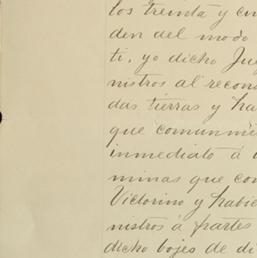 los treinta y cin
den del modo
ti, yo dicho Jue
nistros al recono
das tierras y ha
que comunme
inmediato á
minas que co
Victorino y habie
nistros á partes
dicho bojes de di